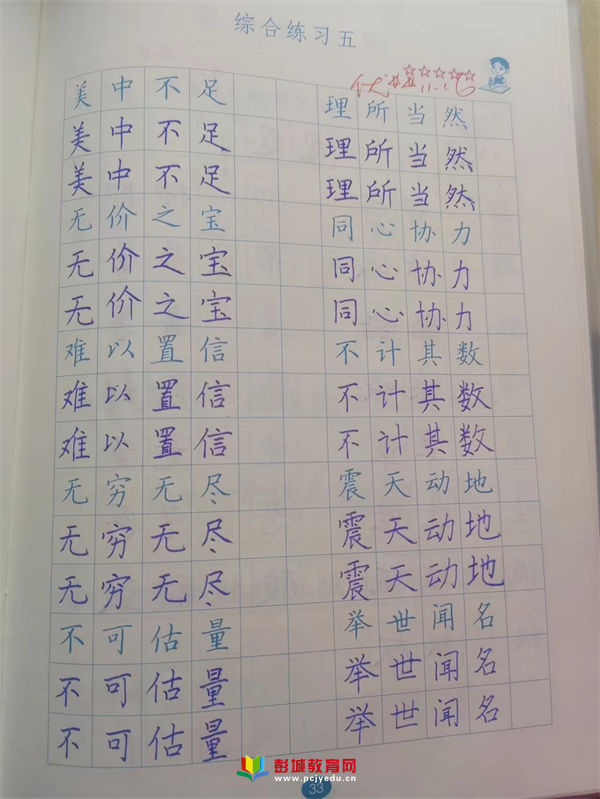 综合练习五
美中不足 理所当然
美中不足 理所当然
美中不足 理所当然
无价之宝 同心协力
无价之宝 同心协力
无价之宝 同心协力
难以置信 不计其数
难以置信 不计其数
难以置信 不计其数
无穷无尽 震天动地
无穷无尽 震天动地
无穷无尽 震天动地
不可估量 举世闻名
不可估量 举世闻名
不可估量 举世闻名
彭城教育网
www.pcjyedu.cn
33